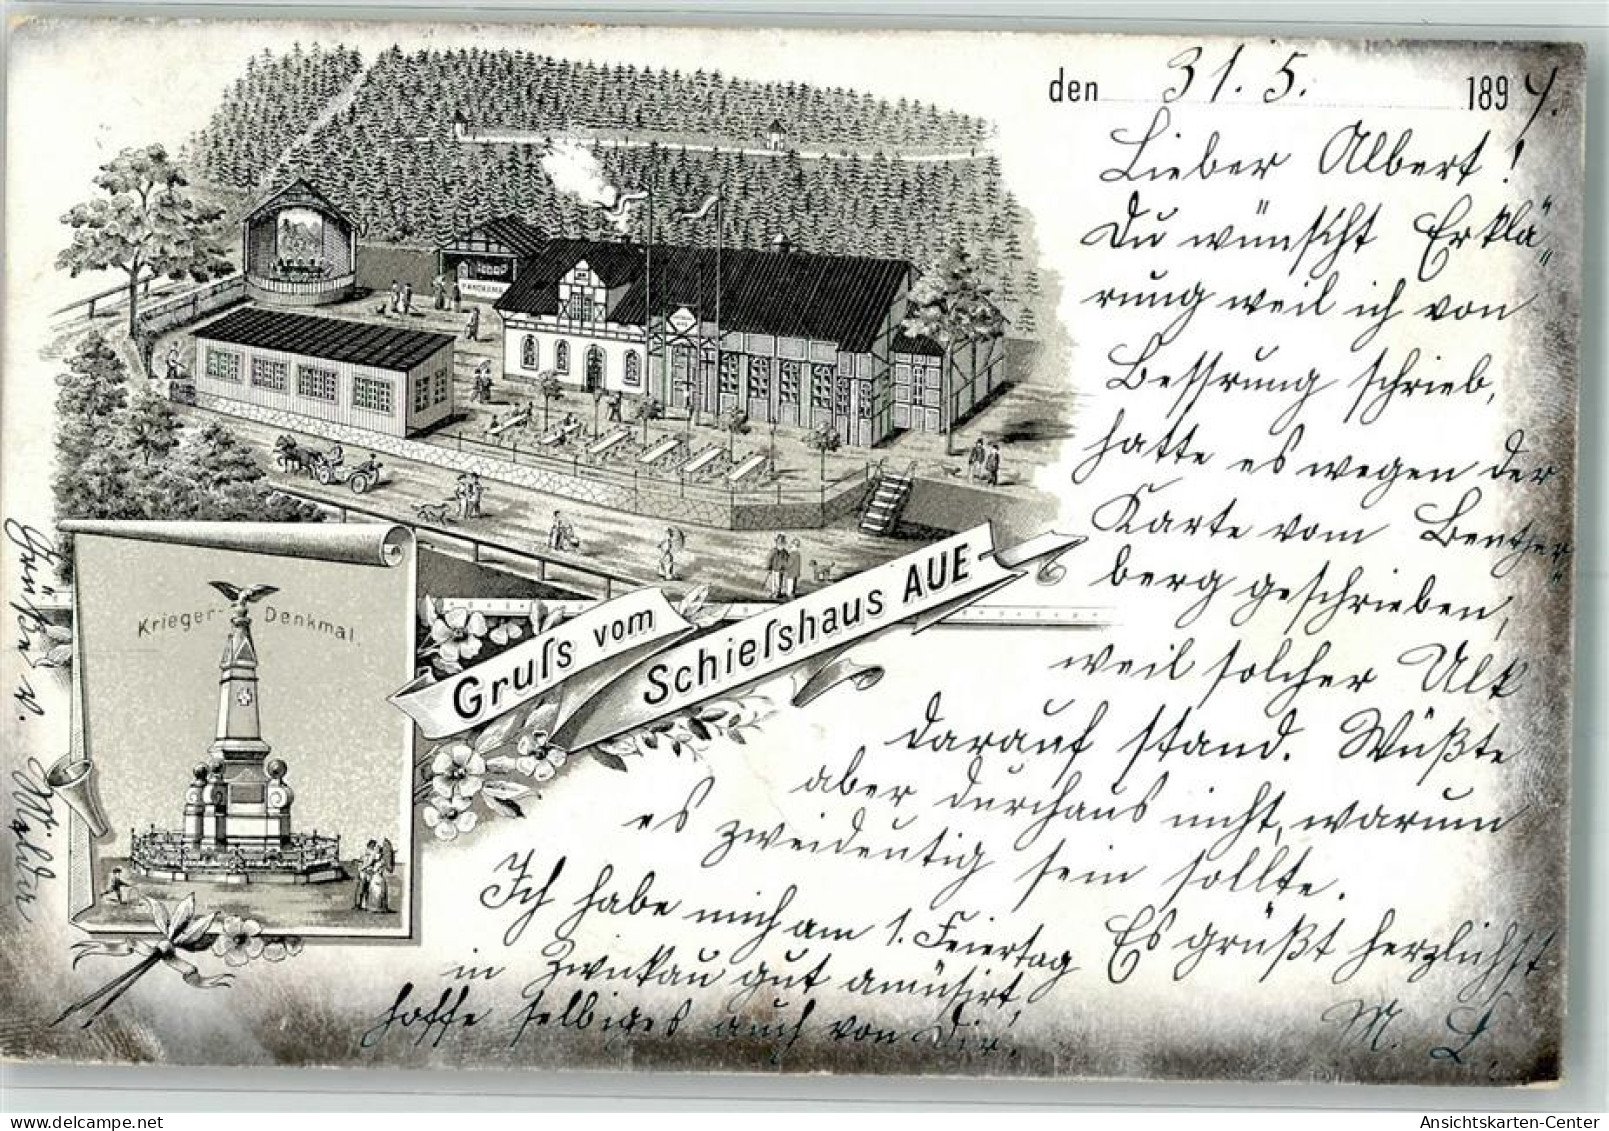 den 31. 5. 1897.
Lieber Albert!
Du wünscht Erklä-
rung weil ich von
Bessrung schrieb,
hatte es wegen der
Karte vom Benther-
berg geschrieben,
weil solcher Ulk
darauf stand. Wüßte
aber durchaus nicht, warum
es zweideutig sein sollte.
Ich habe mich am 1. Feiertag
in Zwickau gut amüsirt,
hoffe selbiges auch von Dir.
Es grüßt herzlichst
M. L.
Grüße d. Mutter
PANORAMA
Krieger-Denkmal.
Gruſs vom
Schieſshaus AUE
Ansichtskarten-Center